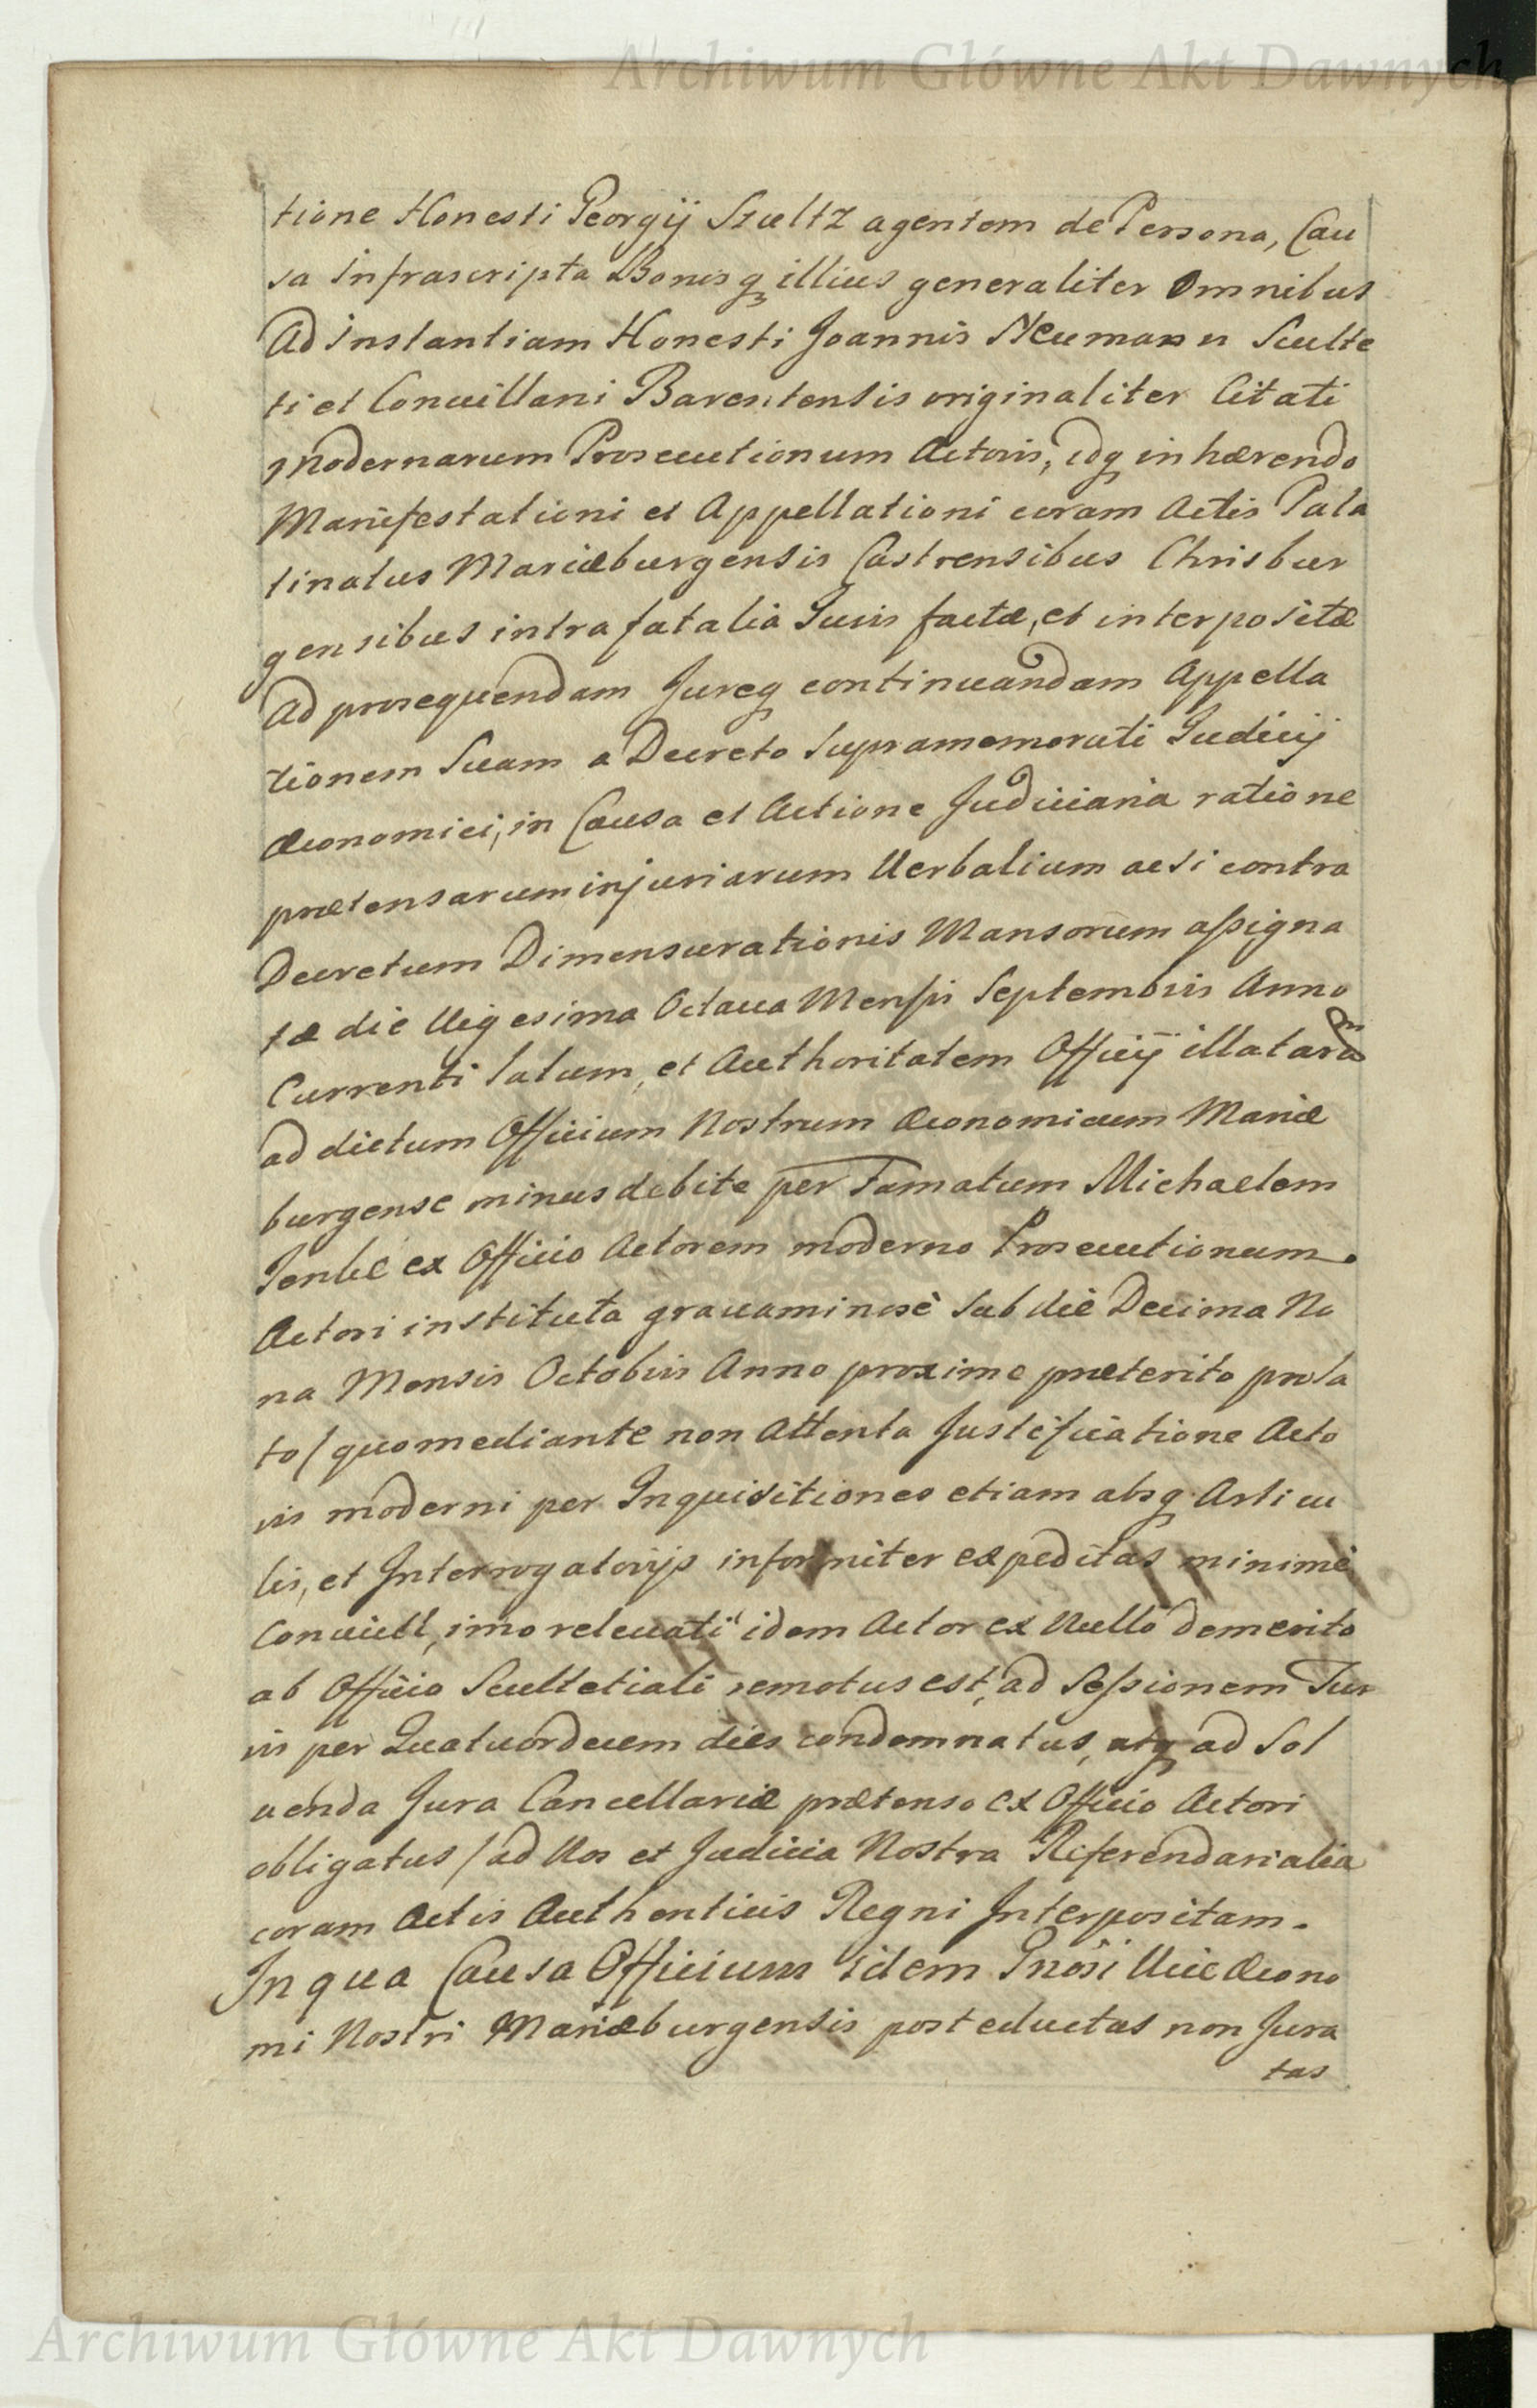 Archiwum Główne Akt Dawnych
tione Honesti Georgij Szultz agentem de Persona, Cau
sa infrascripta Bonisq illius generaliter Omnibus
Ad instantiam Honesti Joannis Neumann Sculte
ti et Conuillani Barentensis originaliter Citati
modernarum Prosecutionum Actoris, idq inhærendo
Manifestationi et Appellationi coram Actis Pala
tinatus Mariæburgensis Castrensibus Chrisbur
gensibus intra fatalia Juris factæ, et interpositæ
Ad prosequendam Jureq continuandam Appella
tionem Suam a Decreto Supramemorati Judicij
Æconomici, in Causa et Actione Judiciaria ratione
prætensarum injuriarum Verbalium acsi contra
Decretum Dimensurationis Mansorum assigna
tæ die Vigesima Octaua Mensis Septembris Anno
Currenti latum, et Authoritatem Officij illatarum
ad dictum Officium Nostrum Æconomicum Mariæ
burgense minus debite per Famatum Michaelem
ex Officio Actorem moderno Prosecutionum
Actori instituta grauaminosè sub die Decima No
na Mensis Octobris Anno proxime præterito prola
to / quo mediante non Attenta Justificatione Acto
ris moderni per Inquisitiones etiam absq Articu
lis, et Interrogatorijs informiter expeditas minimè
Conuicti, imo releuati idem Actor ex Nullo demerito
ab Officio Scultetiali remotus est, ad Sessionem Tur
ris per Quatuordecem dies condemnatus, atq ad Sol
uenda Jura Cancellariæ prætenso ex Officio Actori
obligatus / ad Nos et Judicia Nostra Referendarialia
coram Actis Authenticis Regni Interpositam.
In qua Causa Officium idem Gnosi Vice Æcono
mi Nostri Mariæburgensis post eductas non Jura
tas
Archiwum Główne Akt Dawnych